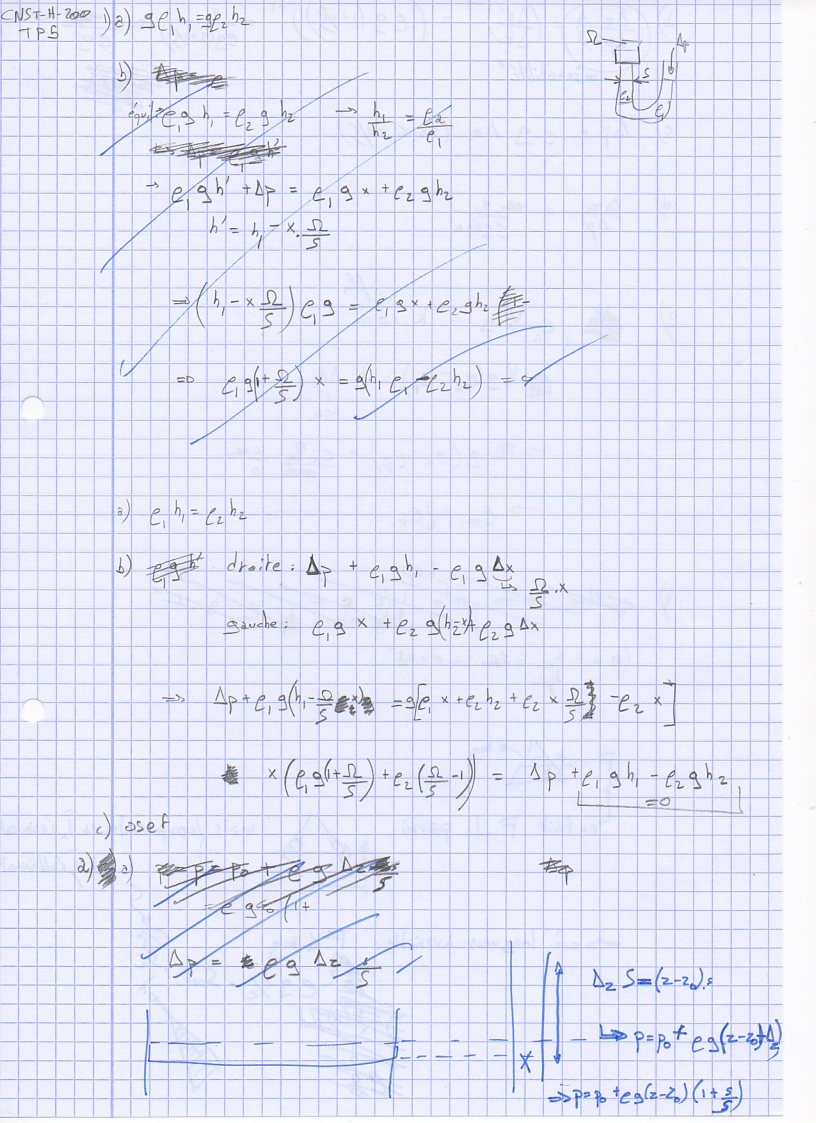 CNST-H-200
TP5
1) a) gρ₁h₁=gρ₂h₂
b)
Ω
Δp
S
ρ₂
ρ₁
équil: ρ₁gh₁ = ρ₂gh₂ → h₁/h₂ = ρ₂/ρ₁
→ ρ₁gh' + Δp = ρ₁gx + ρ₂gh₂
h' = h₁ - x.Ω/S
⇒ (h₁ - xΩ/S)ρ₁g = ρ₁gx + ρ₂gh₂
⇒ ρ₁g(1+Ω/S) x = g(h₁ρ₁ - ρ₂h₂) = 0
a) ρ₁h₁ = ρ₂h₂
b) droite: Δp + ρ₁gh₁ - ρ₁gΔx
↳ Ω/S.x
gauche: ρ₁gx + ρ₂g(h₂-x)+ρ₂gΔx
⇒ Δp + ρ₁g(h₁-Ω/S x) = g[ρ₁x + ρ₂h₂ + ρ₂xΩ/S - ρ₂x]
x(ρ₁g(1+Ω/S)+ρ₂(Ω/S-1)) = Δp + ρ₁gh₁ - ρ₂gh₂
=0
c) osef
2) a) p = p₀ + ρgΔz
= ρg (1+
Δp = ρgΔz s/S
Δz S = (z-z₀).s
↳ p=p₀ + ρg(z-z₀+Δz)
⇒ p=p₀+ρg(z-z₀)(1+s/S)